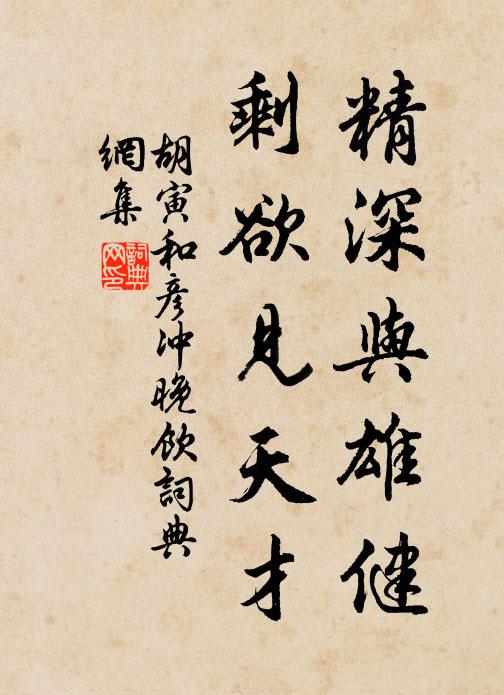 精深與雄健
剩欲見天才
胡寅和彦冲晚飲詞典
網集
詞典
网印